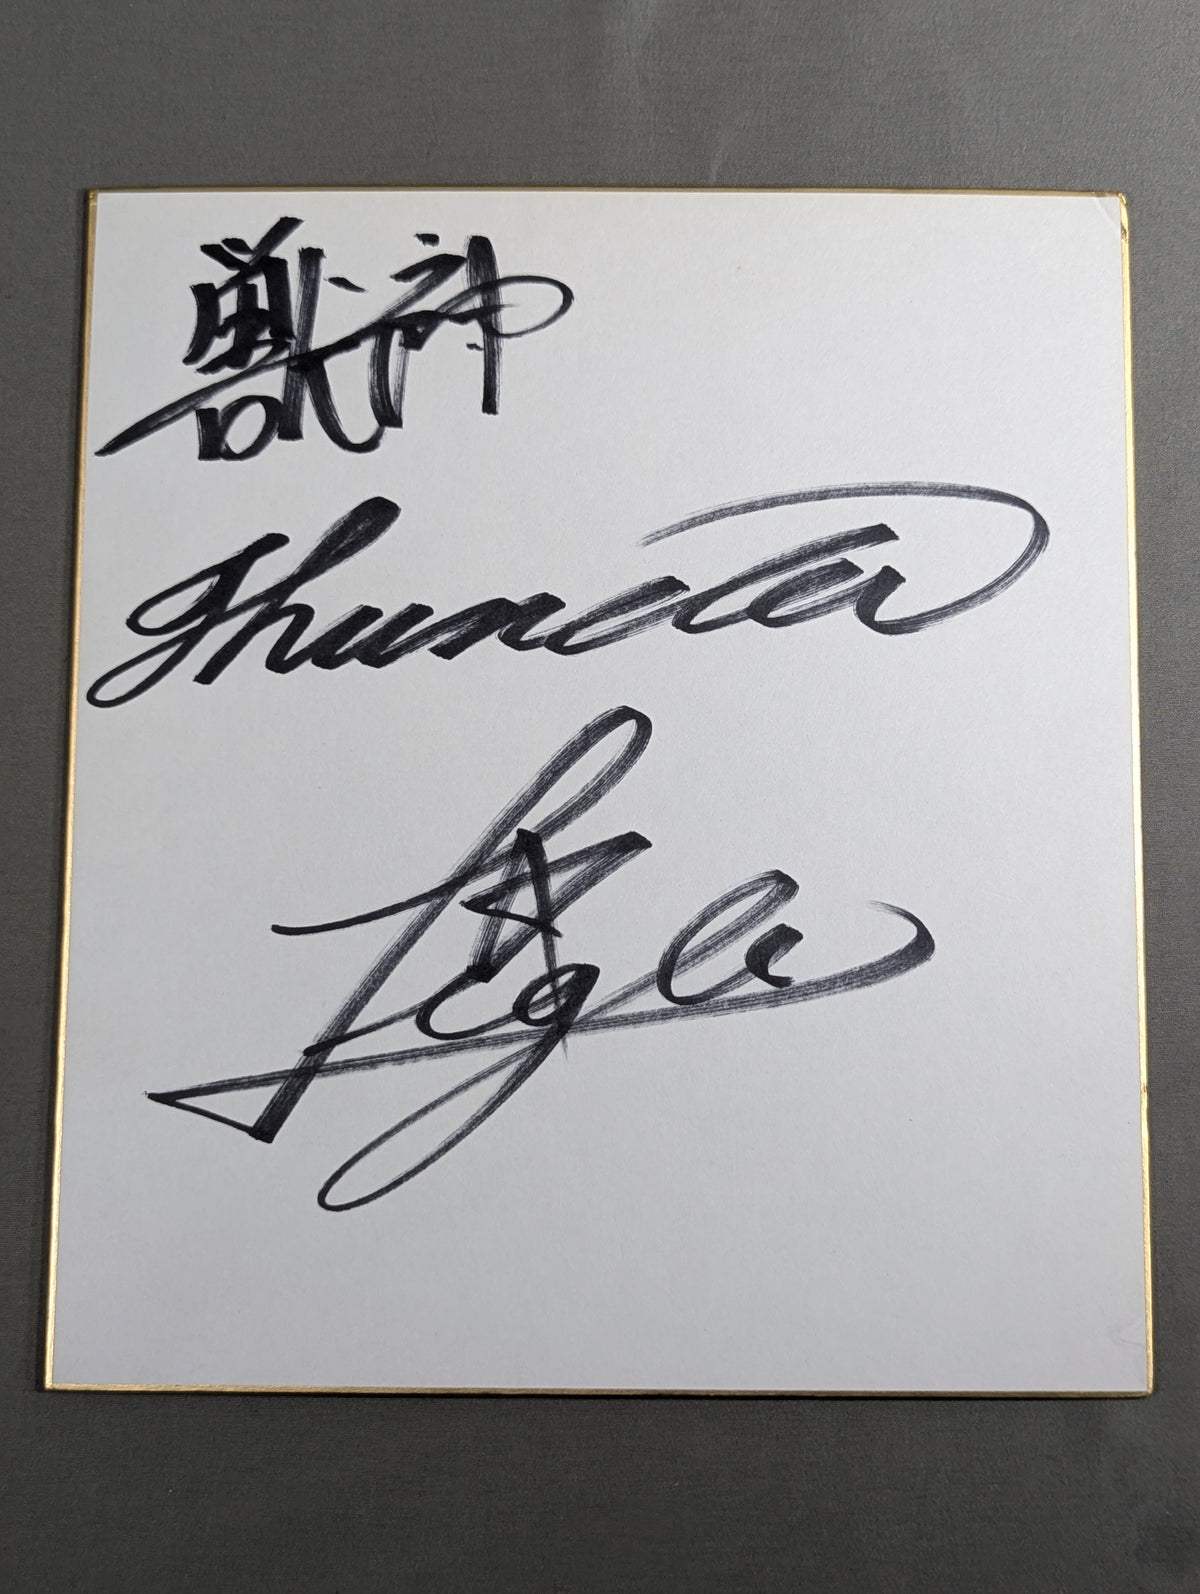 獣神
Thunder
Liger